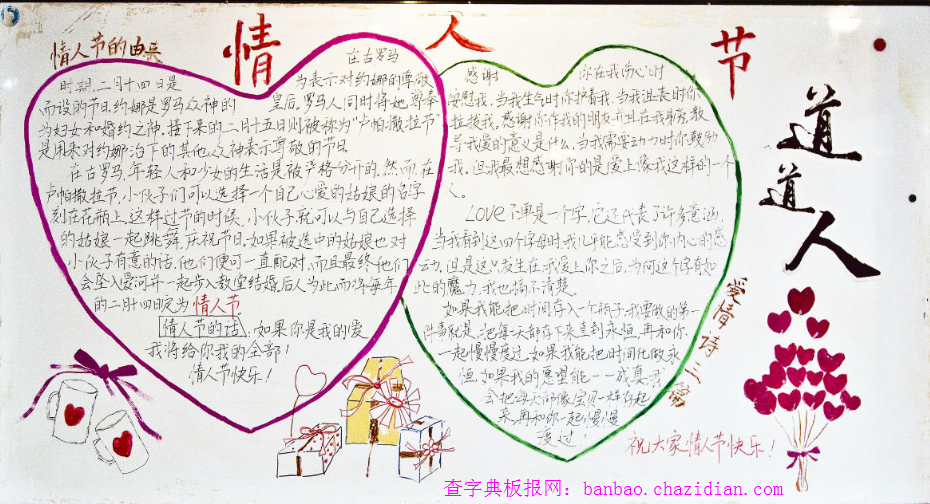 情人节
情人节的由来
在古罗马
时期,二月十四日是为表示对约娜的尊敬
而设的节日.约娜是罗马众神的皇后,罗马人同时将她尊奉
为妇女和婚约之神.接下来的二月十五日则被称为“卢帕撒拉节”
是用来对约娜治下的其他众神表示尊敬的节日
在古罗马,年轻人和少女的生活是被严格分开的.然而,在
卢帕撒拉节,小伙子们可以选择一个自己心爱的姑娘的名字
刻在花瓶上.这样过节的时候,小伙子就可以与自己选择
的姑娘一起跳舞,庆祝节日.如果被选中的姑娘也对
小伙子有意的话,他们便可一直配对,而且最终他们
会坠入爱河并一起步入教堂结婚后人为此而将每年
的二月十四日定为情人节。
情人节的话:如果你是我的爱
我将给你我的全部!
情人节快乐!
感谢你在我伤心时
安慰我,当我生气时你护着我,当我沮丧时你
拉拔我。感谢你作我的朋友而且在我身旁,教
导我爱的意义是什么,当我需要动力时你鼓励
我.但我最想感谢你的是爱上像我这样的一个
人.
Love不单是一个字,它还代表了许多意涵,
当我看到这四个字母时,我几乎能感受到你内心的感
动.但是这只发生在我爱上你之后,为何这个字有如
此的魔力,我也搞不清楚.
如果我能把时间存入一个瓶子,我要做的第一
件事就是,把每一天都存下来直到永恒,再和你
一起慢慢度过.如果我能把时间化做永
恒,如果我的愿望能一一成真,我
会把每天都像宝贝一样存起
来,再和你一起慢慢
度过!
爱情诗三篇
道道人
祝大家情人节快乐!
查字典板报网:banbao.chazidian.com